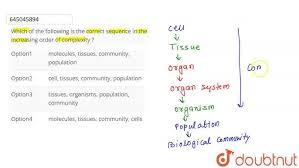 645045894
Which of the following is the correct sequence in the
increasing order of complexity ?
Option1 molecules, tissues, community,
population
Option2 cell, tissues, community, population
Option3 tissues, organisms, population,
community
Option4 molecules, tissues, community, cells
cell
Tissue
organ
organ system
organism
Population
Biological community
Con
doubtnut